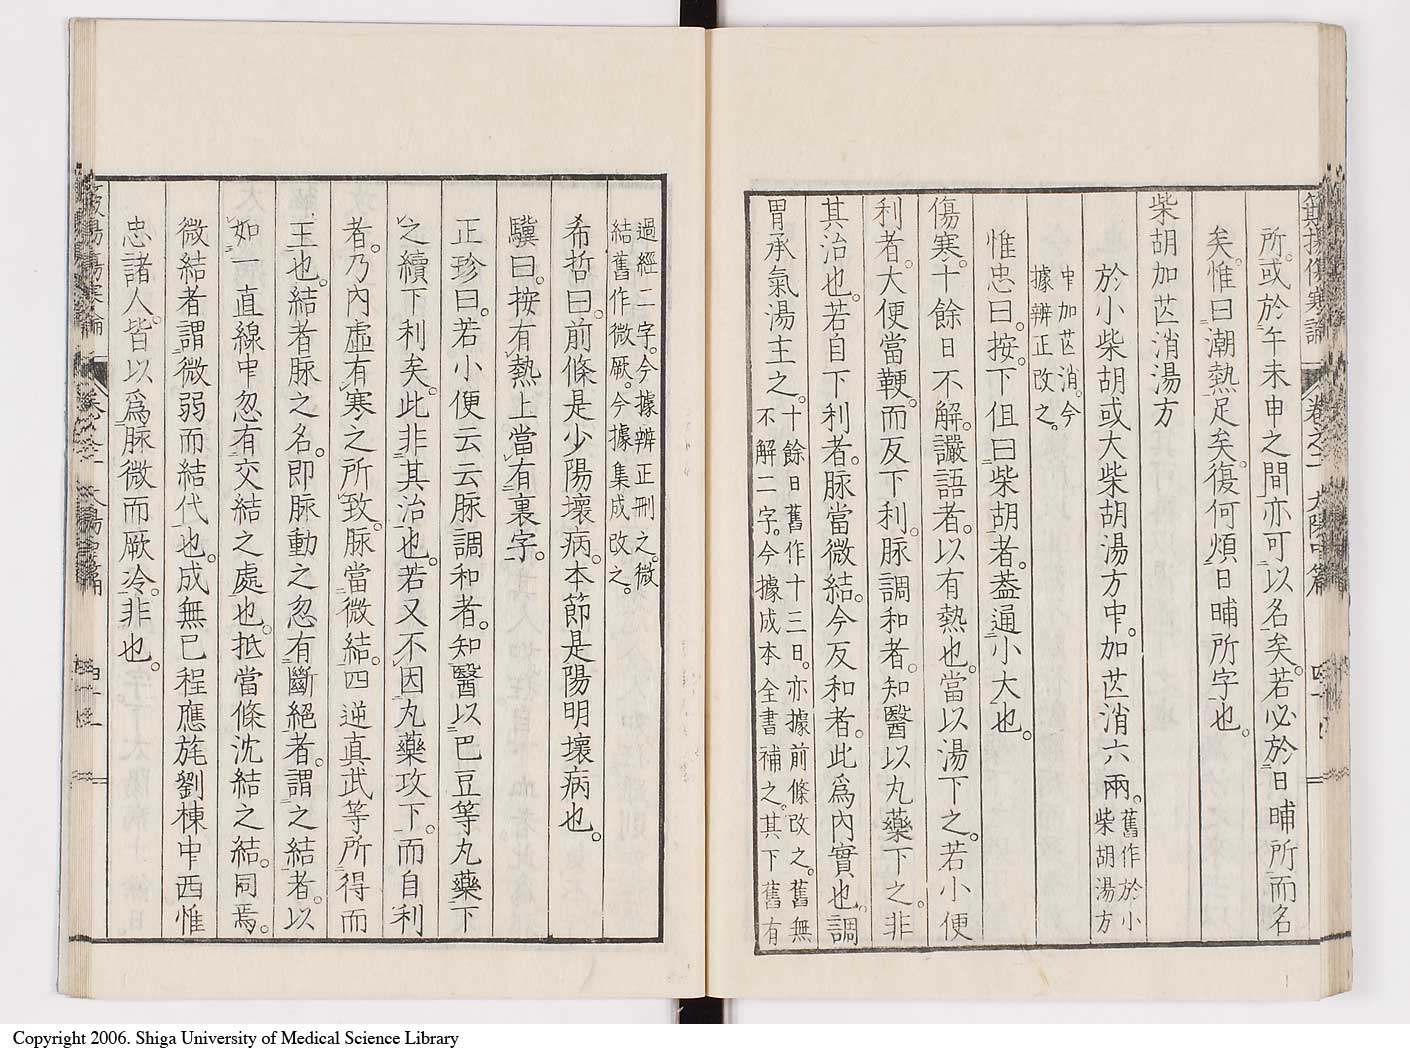 所。或於午未申之間亦可以名矣。若必於日晡所而名
矣。惟曰潮熱足矣。復何煩日晡所字也。
柴胡加芒消湯方
於小柴胡或大柴胡湯方中。加芒消六兩。舊作於小柴胡湯方
中加芒消。今據辨正改之。
惟忠曰。按。下但曰柴胡者。葢通小大也。
傷寒。十餘日不解。讝語者。以有熱也。當以湯下之。若小便
利者。大便當鞕。而反下利。脈調和者。知醫以丸藥下之。非
其治也。若自下利者。脈當微結。今反和者。此爲內實也。調
胃承氣湯主之。十餘日舊作十三日。亦據前條改之。舊無不解二字。今據成本全書補之。其下舊有
過經二字。今據辨正刪之。微結舊作微厥。今據集成改之。
希哲曰。前條是少陽壞病。本節是陽明壞病也。
驥曰。按有熱上當有裏字。
正珍曰。若小便云云脈調和者。知醫以巴豆等丸藥下
之續下利矣。此非其治也。若又不因丸藥攻下。而自利
者。乃內虛有寒之所致。脈當微結。四逆真武等所得而
主也。結者脈之名。即脈動之忽有斷絕者。謂之結者。以
如一直線中忽有交結之處也。抵當條沈結之結。同焉。
微結者謂微弱而結代也。成無已程應旄劉棟中西惟
忠諸人。皆以爲脈微而厥冷。非也。
Copyright 2006. Shiga University of Medical Science Library